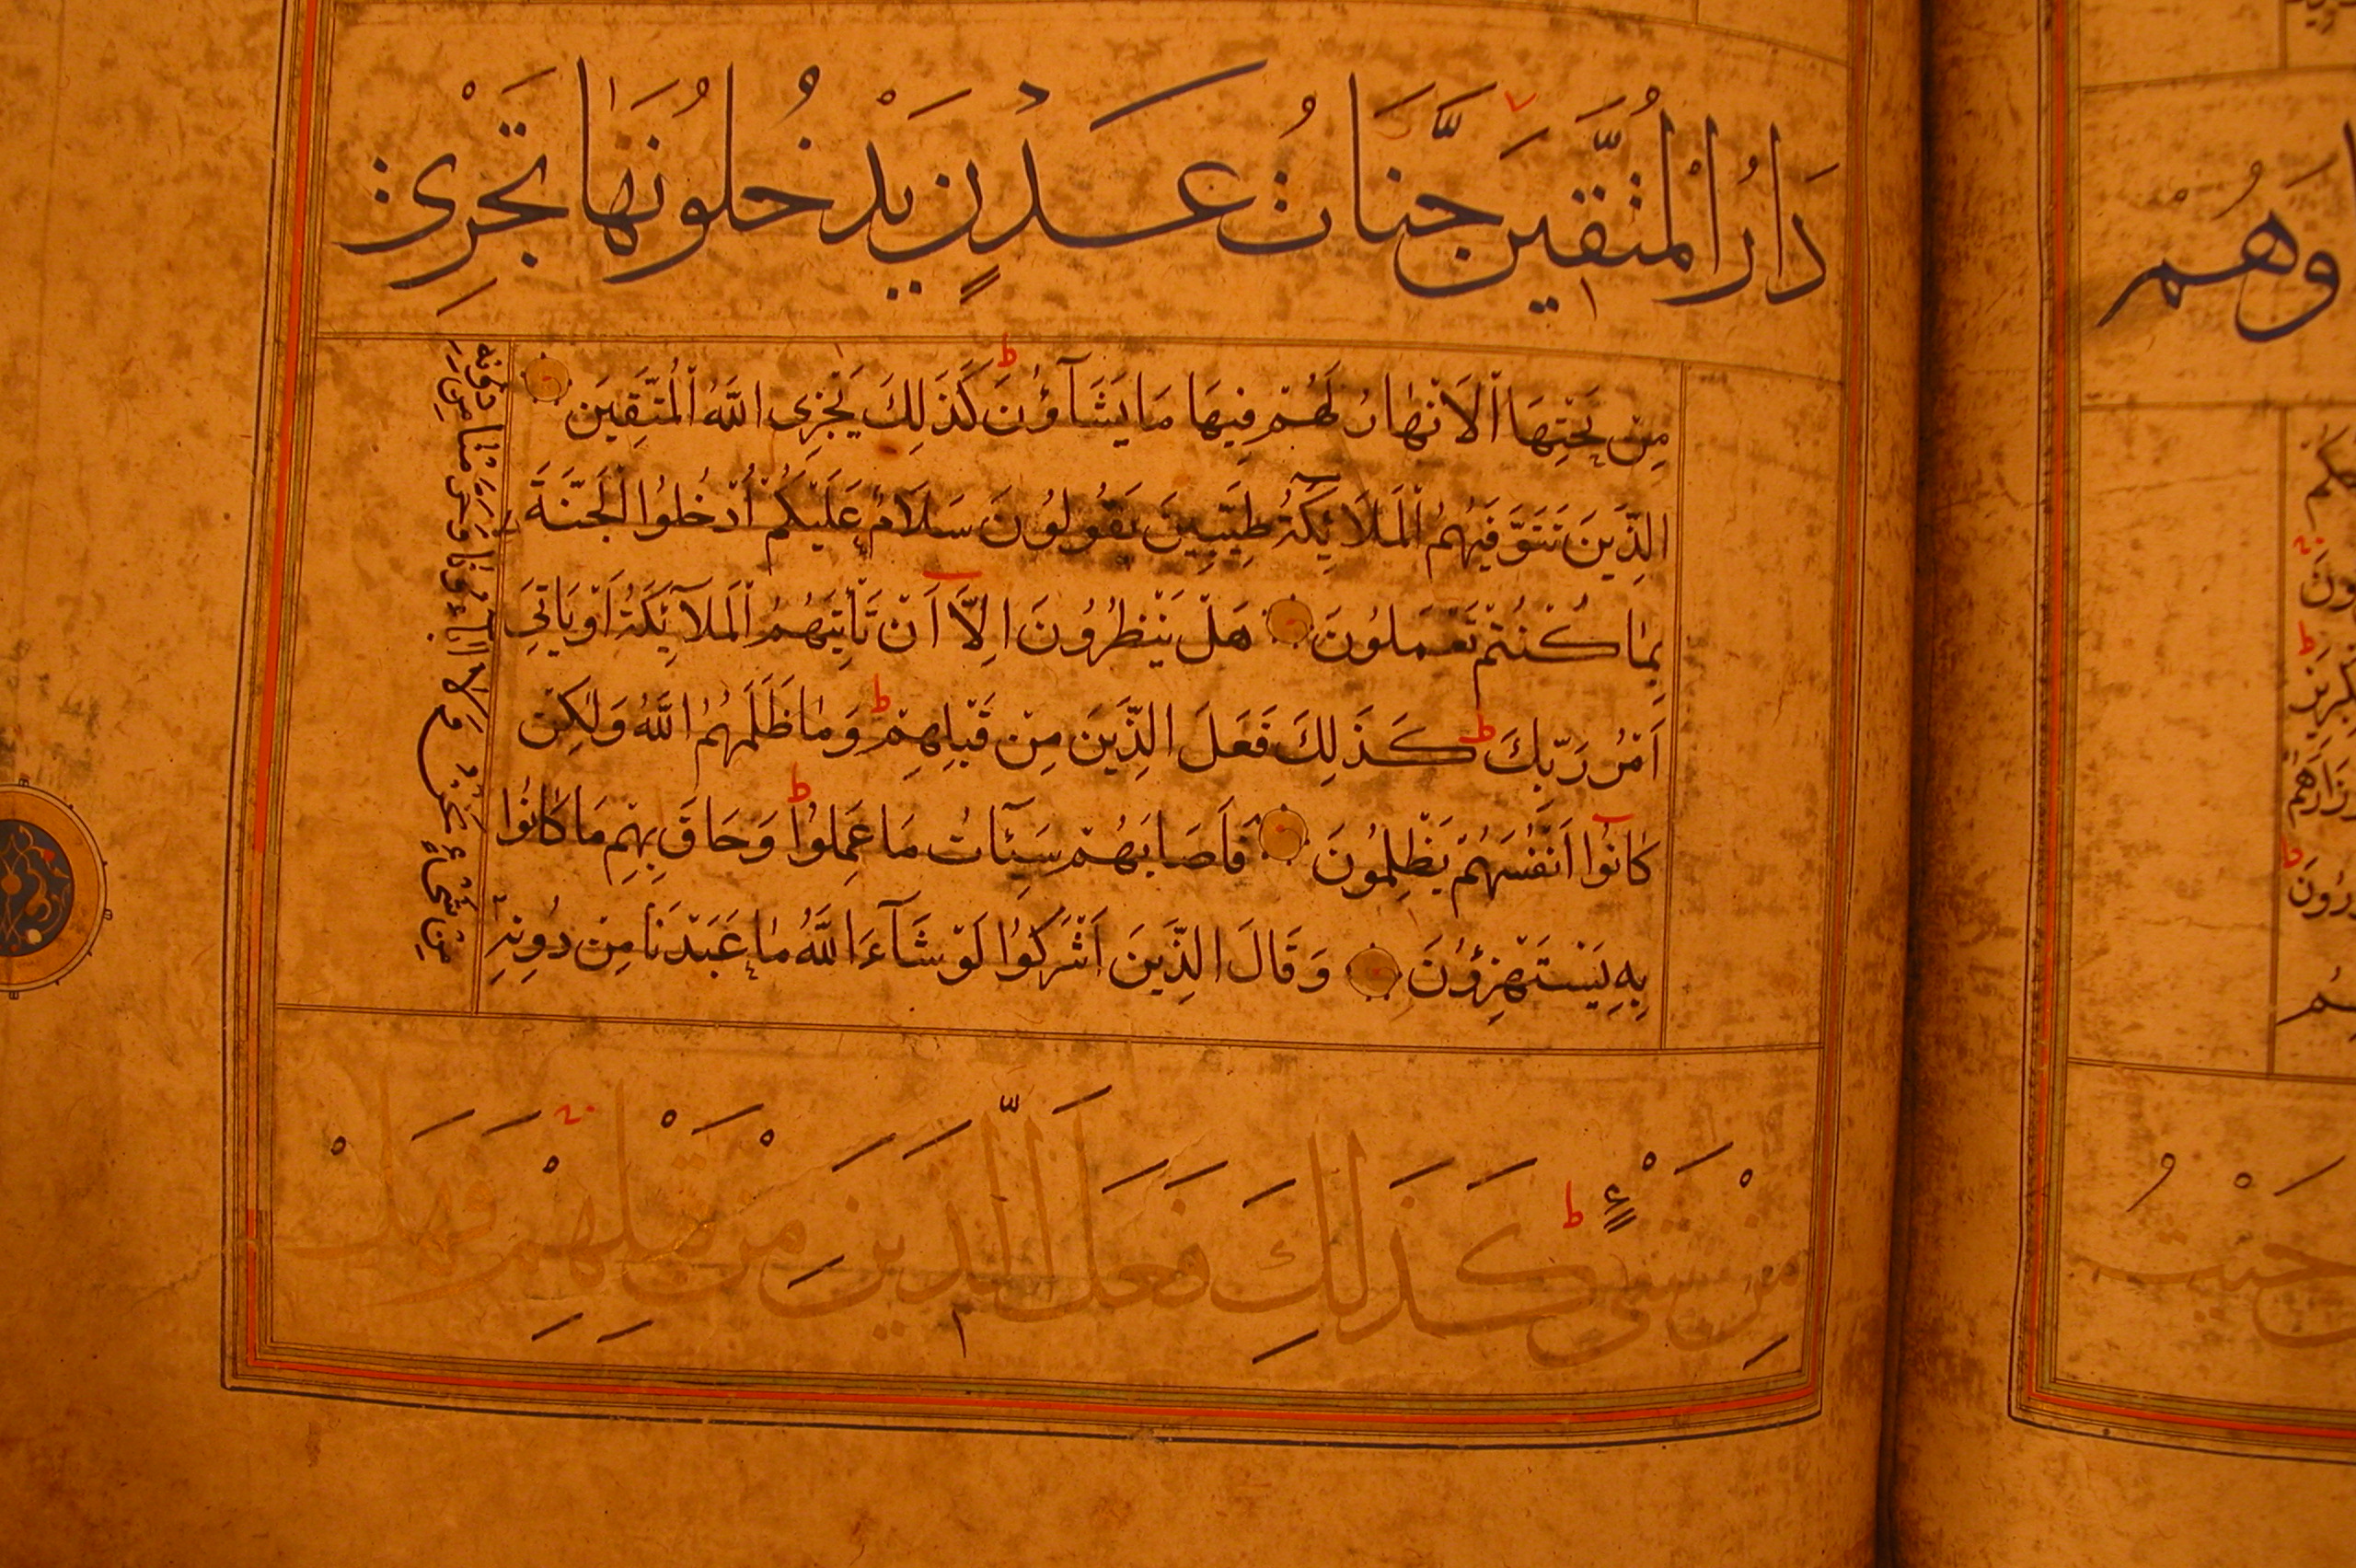 دَارُ الْمُتَّقِينَ جَنَّاتُ عَدْنٍ يَدْخُلُونَهَا تَجْرِي
مِنْ تَحْتِهَا اْلَانْهَارُ لَهُمْ فِيهَا مَا يَشَآؤُنَ ط كَذَلِكَ يَجْزِى اللَّهُ اْلمُتَّقِينَ
الَّذِينَ تَتَوَفَّيهُمُ اْلمَلَائِكَةُ طَيِّبِينَ يَقُولُونَ سَلَامٌ عَلَيْكُمْ اُدْخُلُوا الْجَنَّةَ
بِمَا كُنْتُمْ تَعْمَلُونَ هَلْ يَنْظُرُونَ اِلَّآ اَنْ تَأْتِيَهُمُ اْلمَلآئِكَةُ اَوْ يَاْتِيَ
اَمْرُ رَبِّكَ ط كَذَلِكَ فَعَلَ الَّذِينَ مِنْ قَبْلِهِمْ ط وَمَا ظَلَمَهُمُ اللَّهُ وَلَكِنْ
كَانُوآ اَنْفُسَهُمْ يَظْلِمُونَ فَاَصَابَهُمْ سَيِّئَآتُ مَا عَمِلُوا ط وَحَاقَ بِهِمْ مَا كَانُوا
بِهِ يَسْتَهْزِؤُنَ وَقَالَ الَّذِينَ اَشْرَكُوا لَوْ شَآءَ اللَّهُ مَا عَبَدْنَا مِنْ دُونِهِ
مِنْ شَيْءٍ ط كَذَلِكَ فَعَلَ الَّذِينَ مِنْ قَبْلِهِمْ فَهَلْ
وَهُمْ